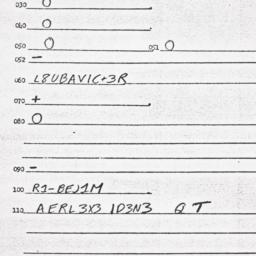 030 O
040 O
050 O 051 O
052 –
060 L8UBAVIC+3R
070 +
080 O
090 –
100 R1-BEJ1M
110 AERL3X3 1D3N3 QT